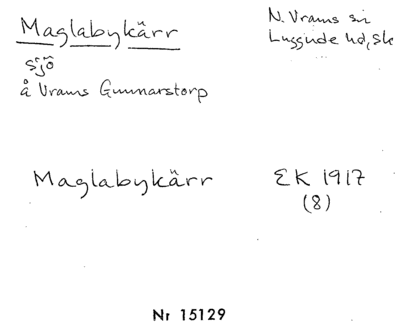 Maglabykärr
N. Vrams sn
Luggude hd, Sk
sjö
å Vrams Gunnarstorp
Maglabykärr
EK 1917
(8)
Nr 15129